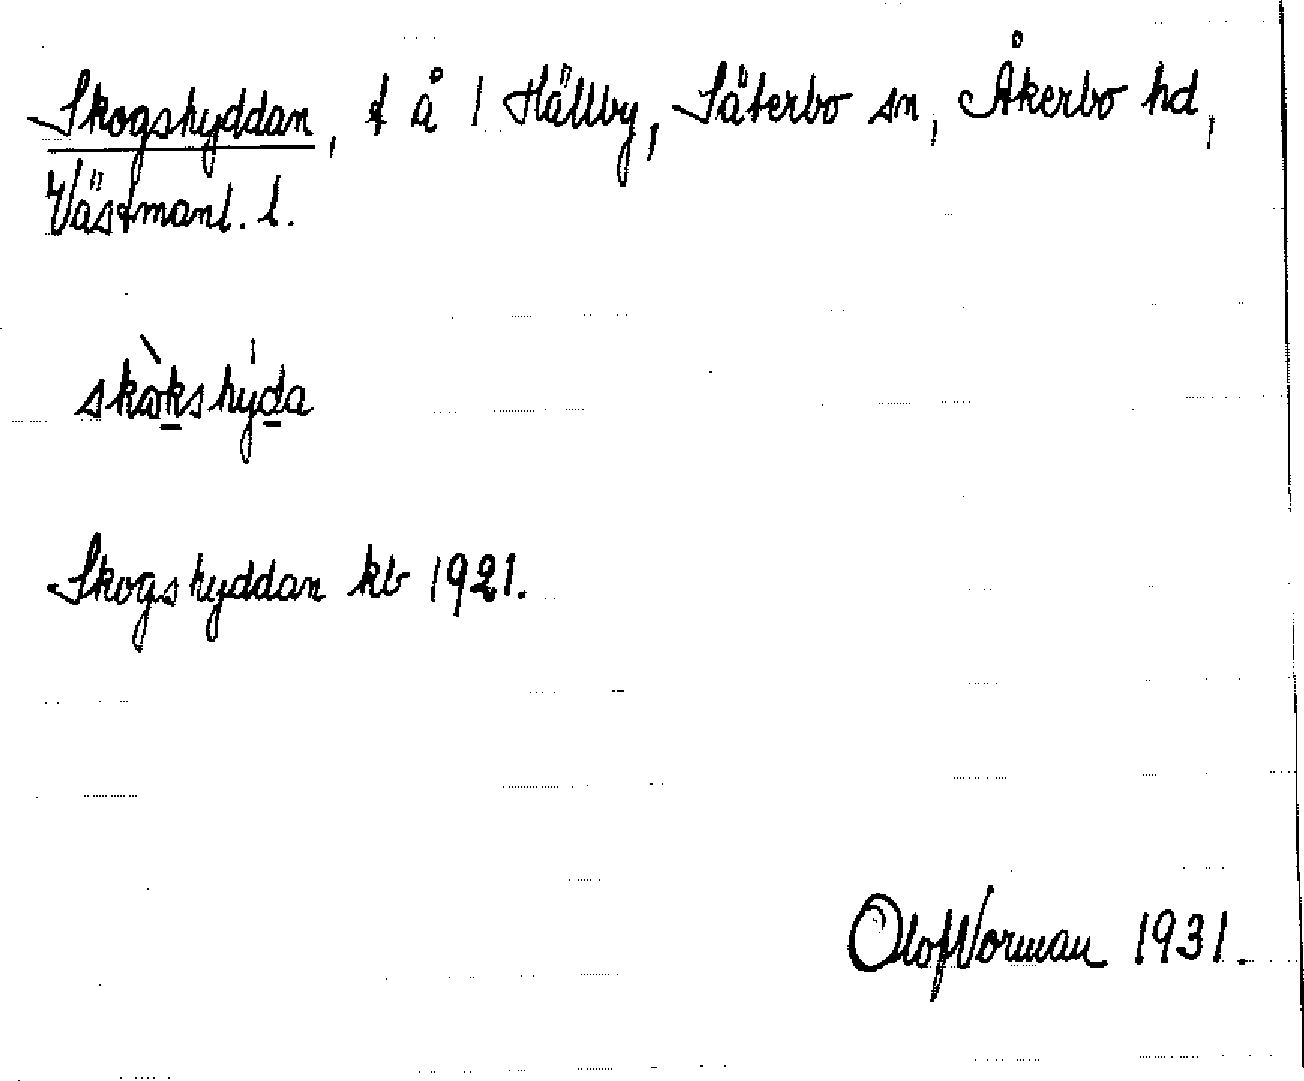 Skogshyddan, t å 1 Hällby, Säterbo sn, Åkerbo hd,
Västmanl. l.
skòkshýda
Skogshyddan kb 1921.
Olof Norman 1931.